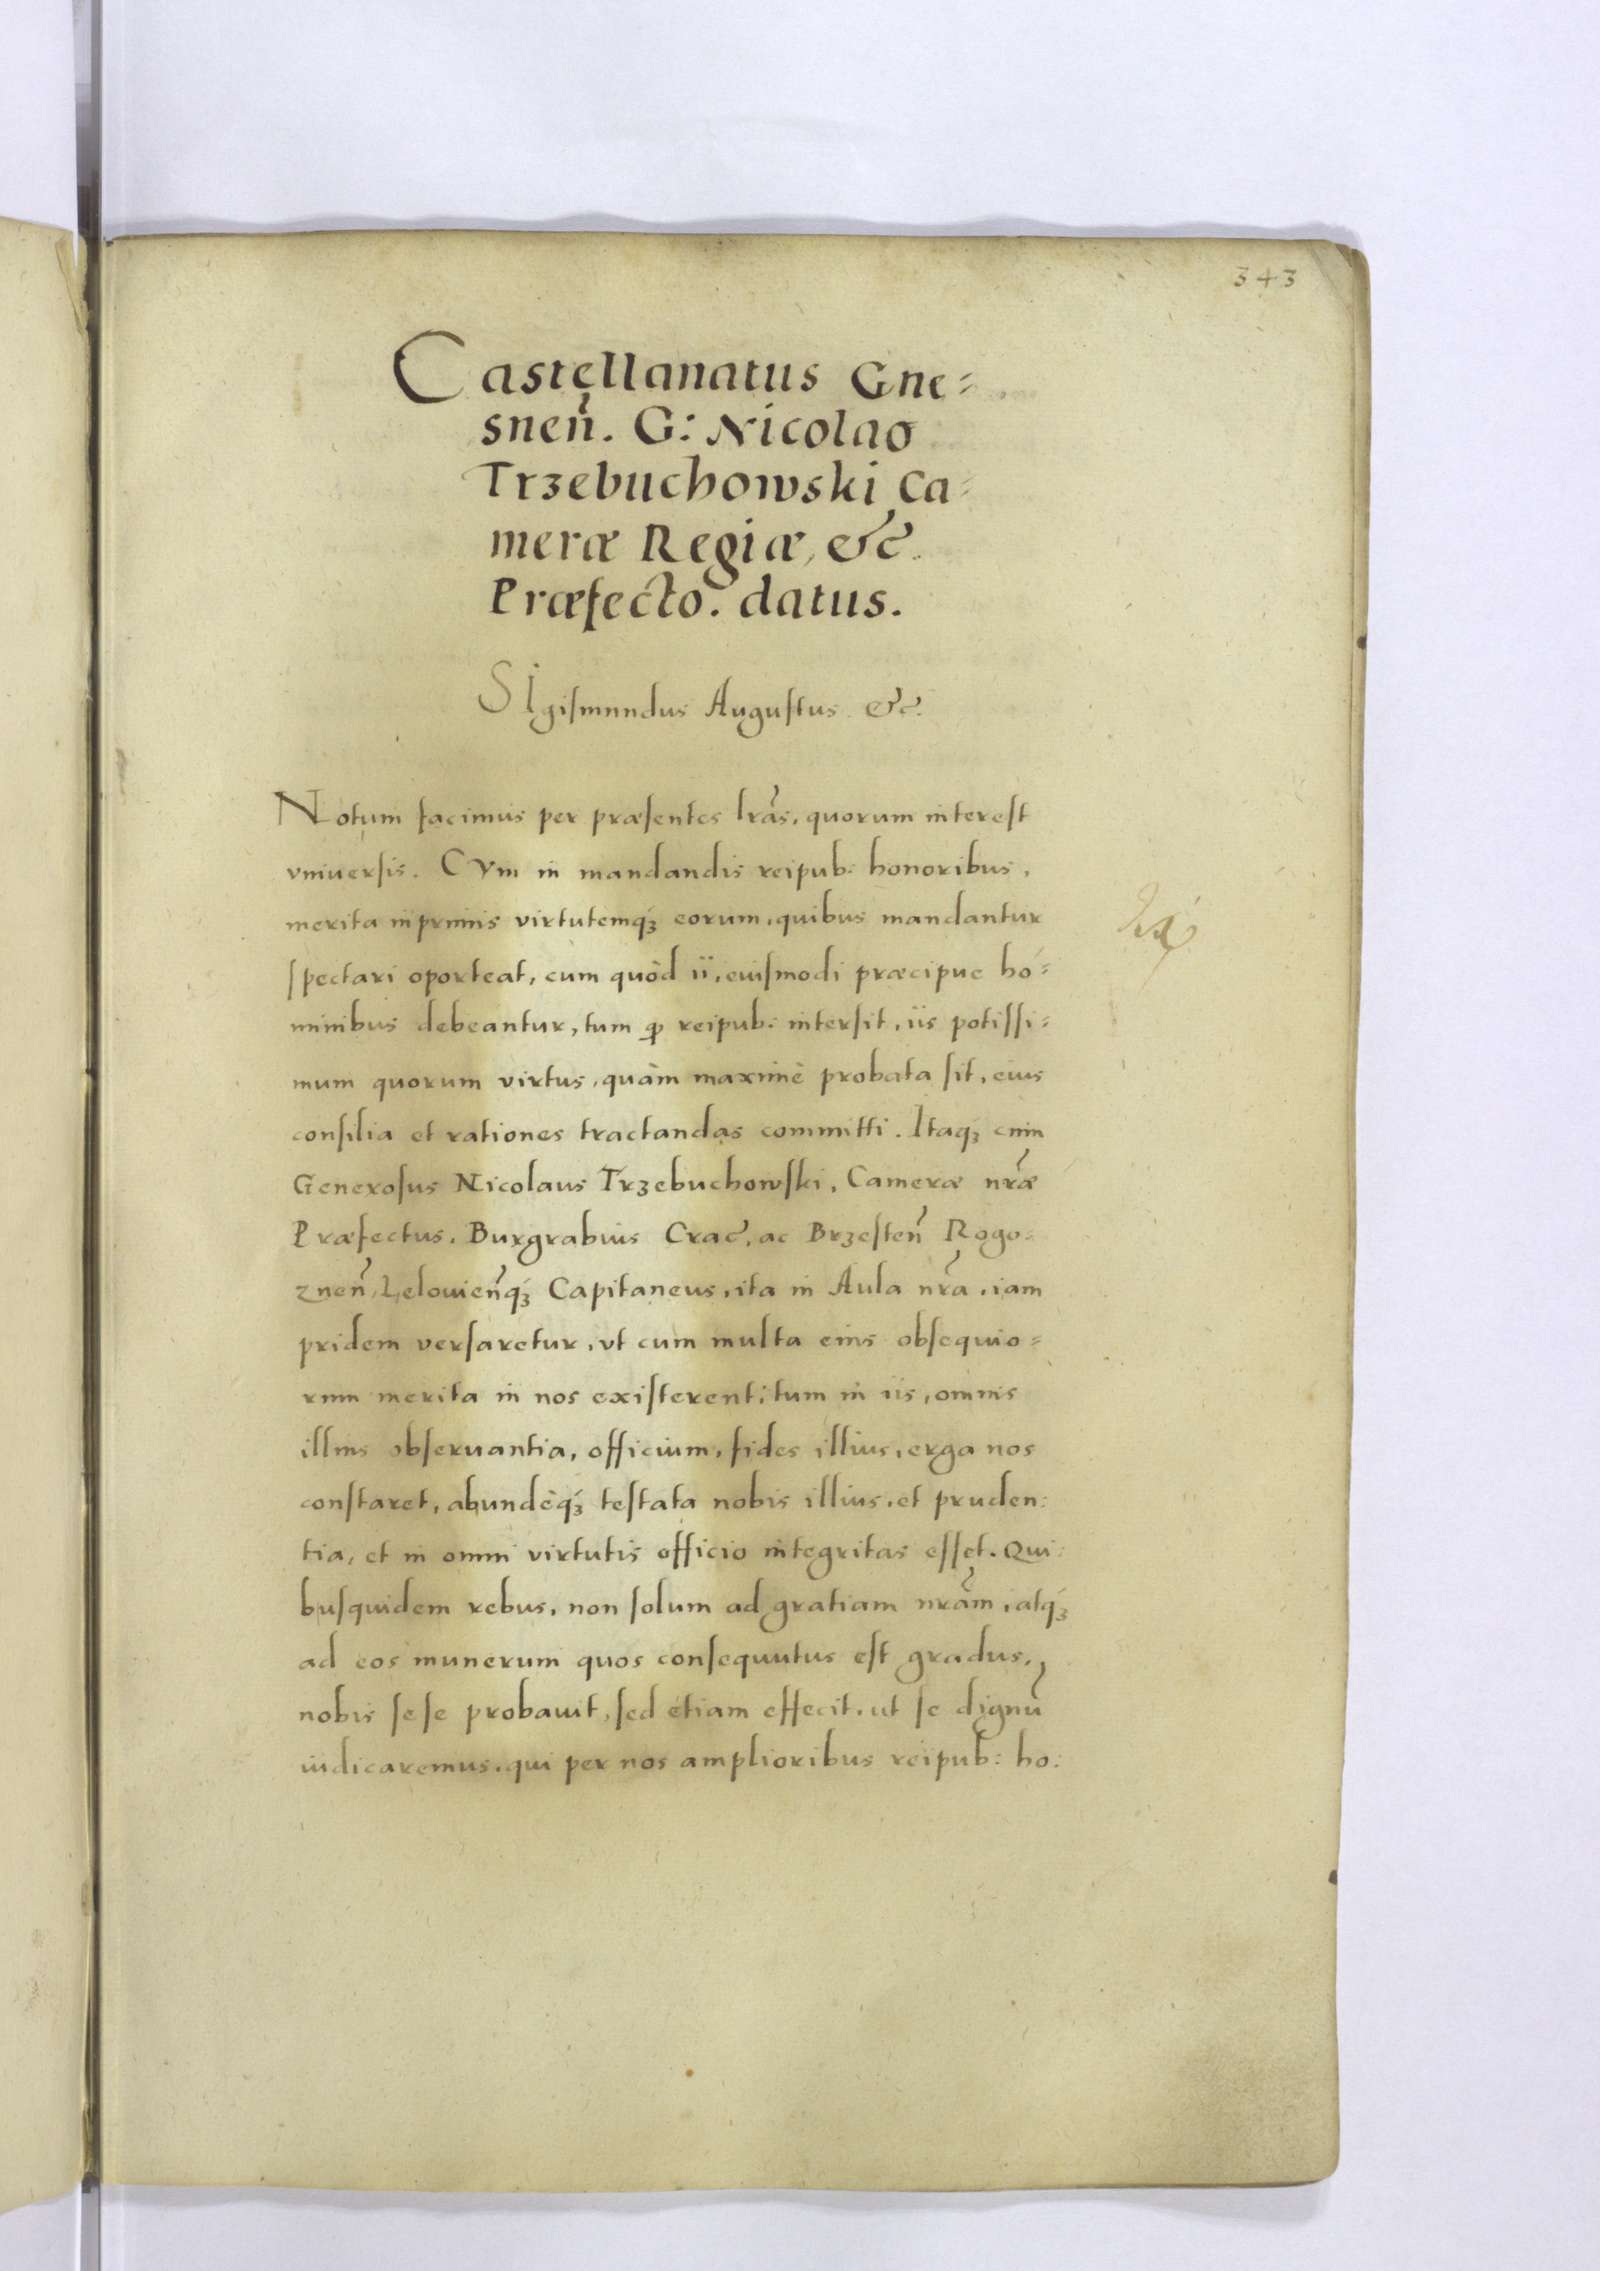 343
Castellanatus Gne=
snen̄. G: Nicolao
Trzebuchowski Ca=
meræ Regiæ, &c.
Præfecto. datus.
SIgismundus Augustus &c.
Notum facimus per præsentes lr̄as, quorum interest
vniuersis. CVm in mandandis reipub: honoribus,
merita inprimis virtutemq́ꝫ eorum, quibus mandantur
spectari oporteat, cum quòd ii, eiusmodi præcipue ho=
minibus debeantur, tum ꝙ reipub: intersit, iis potissi=
mum quorum virtus, quàm maximè probata sit, eius
consilia et rationes tractandas committi. Itaqꝫ cum
Generosus Nicolaus Trzebuchowski, Cameræ nr̄æ
Præfectus, Burgrabius Crac̄, ac Brzesten̄ Rogo=
znen̄, Lelouien̄q́ꝫ Capitaneus, ita in Aula nr̄a, iam
pridem versaretur, vt cum multa eius obsequio=
rum merita in nos existerent: tum in iis, omnis
illius obseruantia, officium, fides illius, erga nos
constaret, abundèq́ꝫ testata nobis illius, et pruden:
tia, et in omni virtutis officio integritas esset. Qui:
busquidem rebus, non solum ad gratiam nr̄am, atq́ꝫ
ad eos munerum quos consequutus est gradus,
nobis sese probauit, sed etiam effecit, ut se dignū
iudicaremus, qui per nos amplioribus reipub: ho: